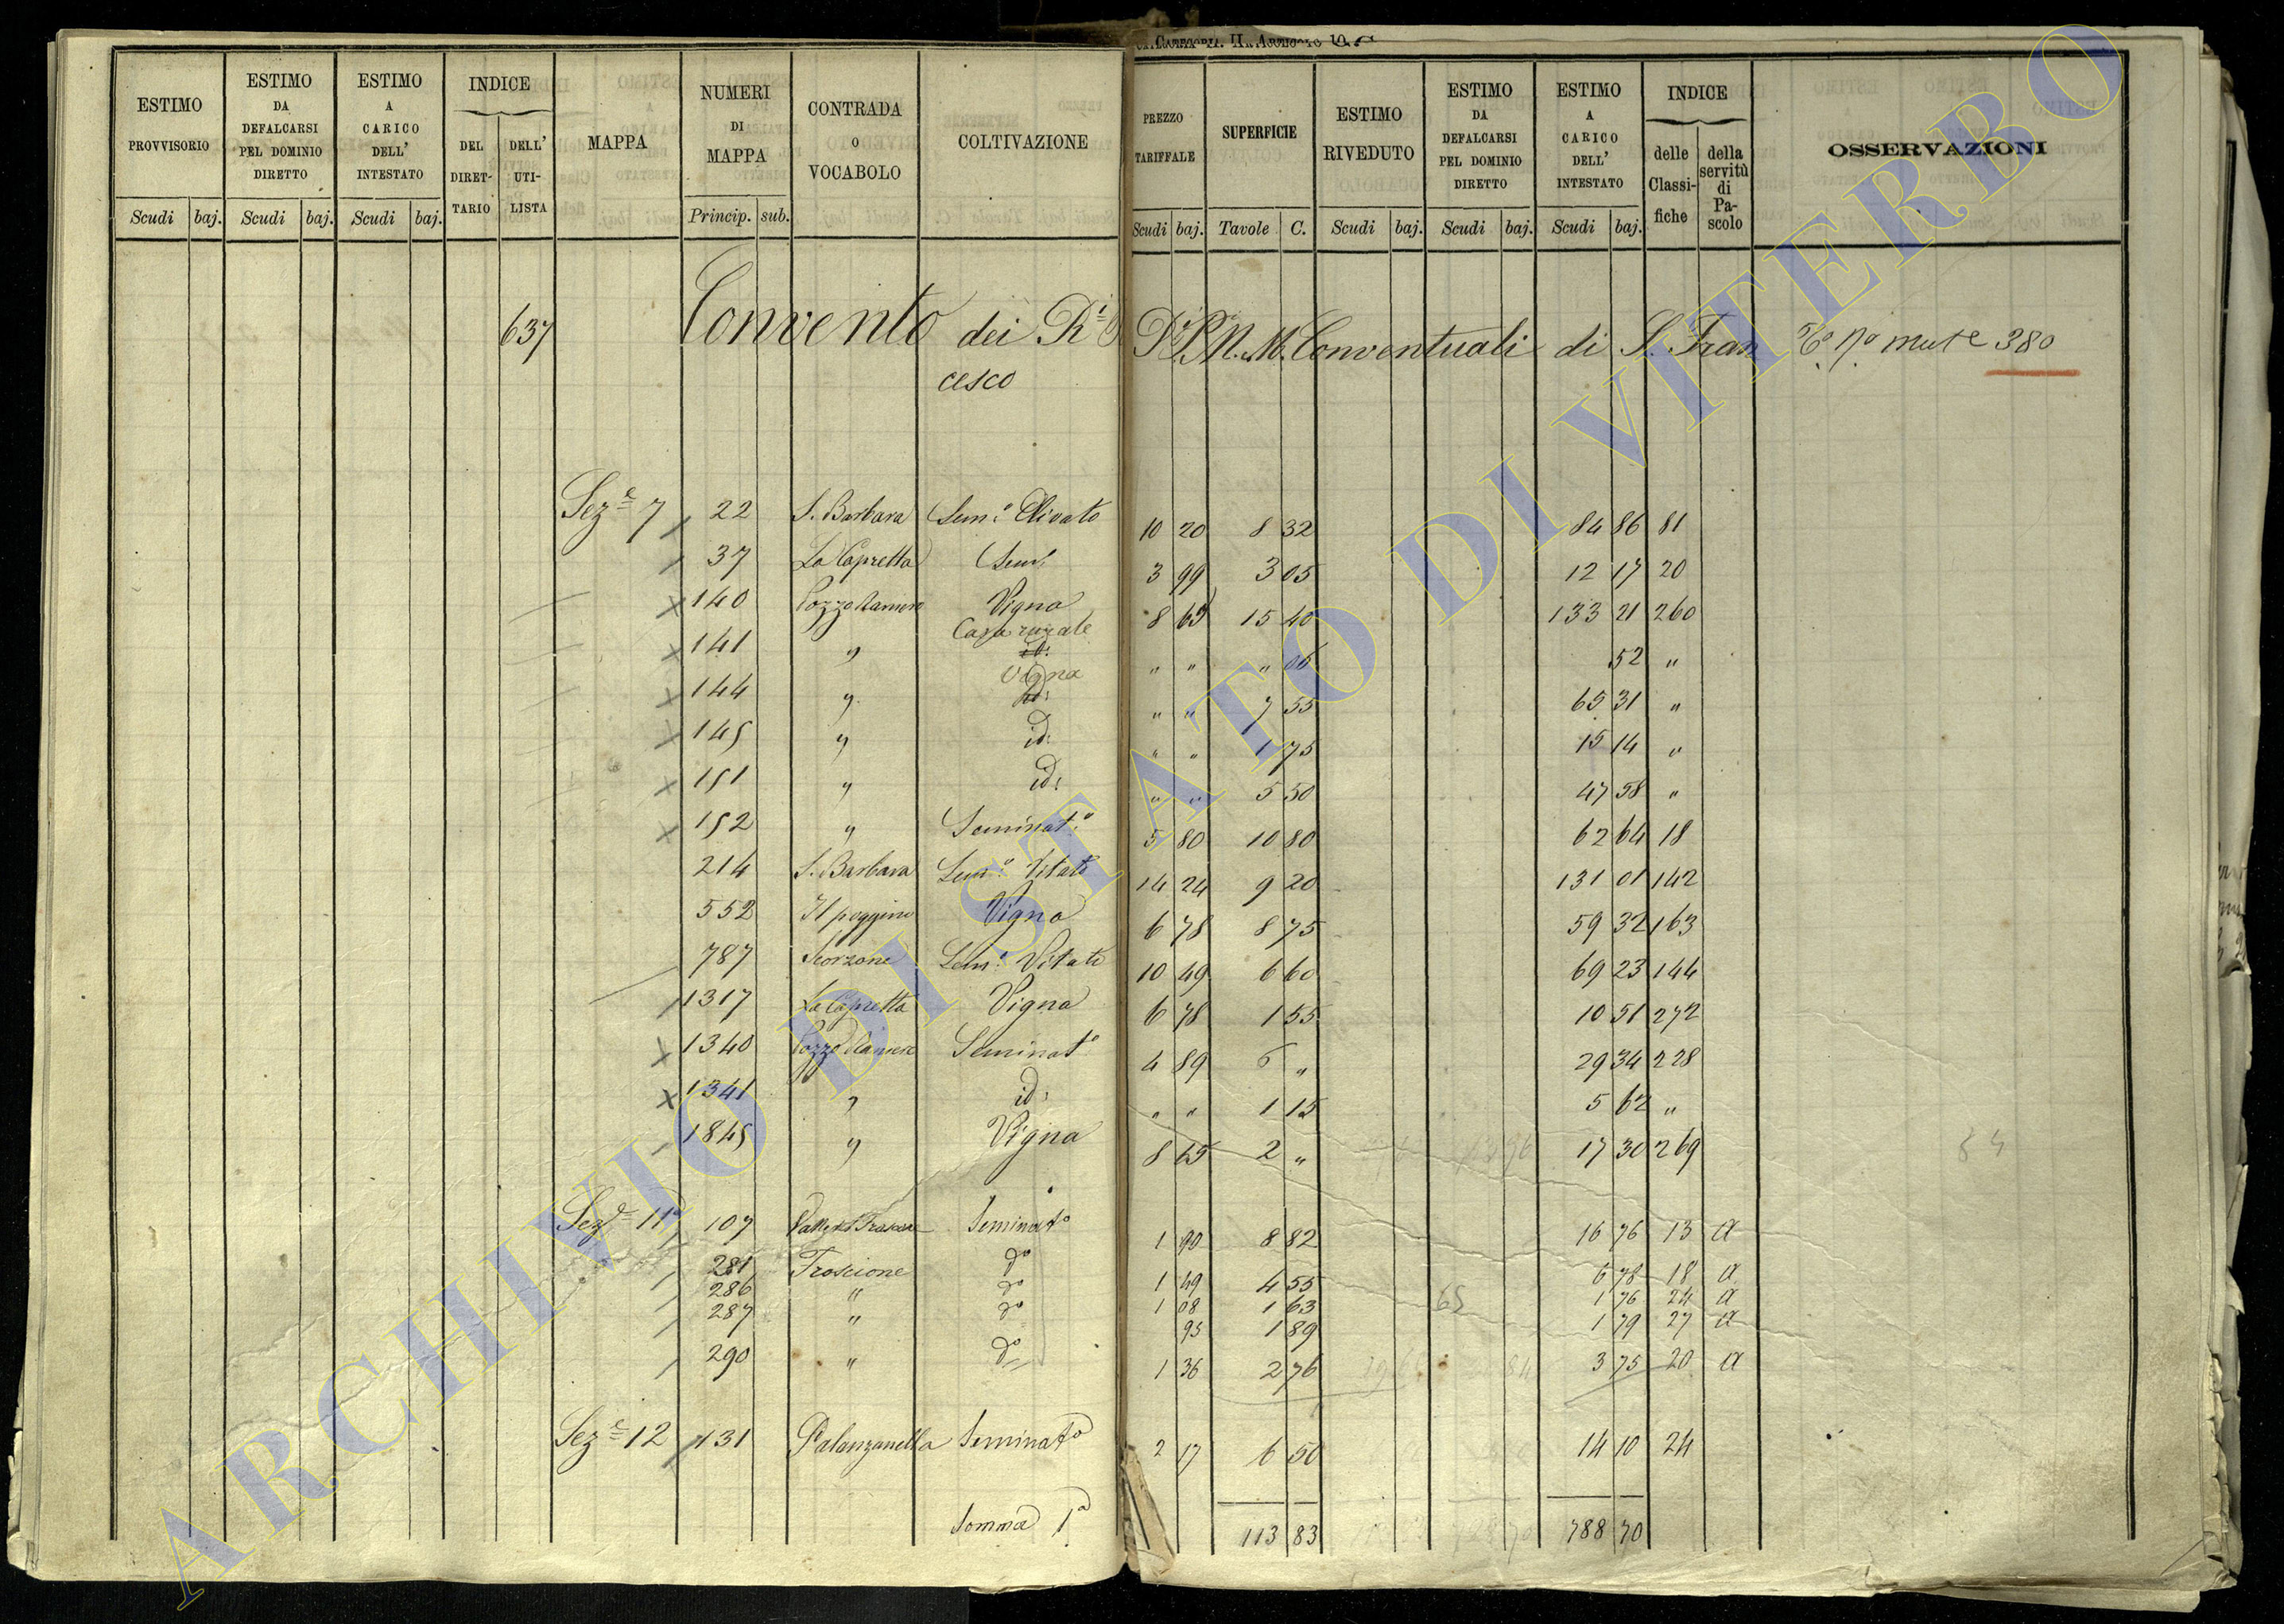 Categoria. II. Articolo
ESTIMO PROVVISORIO | ESTIMO DA DEFALCARSI PEL DOMINIO DIRETTO | ESTIMO A CARICO DELL' INTESTATO | INDICE DEL DIRET-TARIO | DELL' UTI-LISTA | MAPPA | NUMERI DI MAPPA | CONTRADA O VOCABOLO | COLTIVAZIONE | PREZZO TARIFFALE | SUPERFICIE | ESTIMO RIVEDUTO | ESTIMO DA DEFALCARSI PEL DOMINIO DIRETTO | ESTIMO A CARICO DELL' INTESTATO | INDICE delle Classi-fiche | della servitù di Pa-scolo | OSSERVAZIONI
Scudi | baj. | Scudi | baj. | Scudi | baj. | Princip. | sub. | Scudi | baj. | Tavole | C. | Scudi | baj. | Scudi | baj. | Scudi | baj.
637 Convento dei R. P. P. M. M. Conventuali di S. Fran
cesco
380
Sez.e 7 22 S. Barbara Sem.o Olivato 10 20 8 32 84 86 81
37 La Capretta Sem.o 3 99 3 05 12 17 20
140 Pozzo Ranieri Vigna 8 65 15 40 133 21 260
141 " Casa rurale id: " " " 06 52 "
144 " Vigna id: " " 7 55 65 31 "
145 " id: " " 1 75 15 14 "
151 " id: " " 5 50 47 58 "
152 " Seminat.o 5 80 10 80 62 64 18
214 S. Barbara Sem.o Vitato 14 24 9 20 131 01 142
552 Il poggino Vigna 6 78 8 75 59 32 163
787 Scorzone Sem.o Vitato 10 49 6 60 69 23 144
1317 La Capretta Vigna 6 78 1 55 10 51 272
1340 Pozzo Ranieri Seminat.o 4 89 6 " 29 34 228
1341 " id: " " 1 15 5 62 "
1845 " Vigna 8 65 2 " 17 30 269
Sez.e 11a 107 Seminato 1 90 8 82 16 76 13 a
281 Froscione do 1 49 4 55 6 78 18 a
286 " do 1 08 1 63 1 76 24 a
287 " do 95 1 89 1 79 27 a
290 " do 1 36 2 76 3 75 20 a
65
84
Sez.e 12 131 Palanzanella Seminato 2 17 6 50 14 10 24
Somma 1a 113 83 788 70
ARCHIVIO DI STATO DI VITERBO